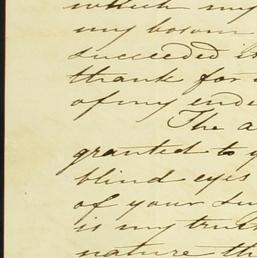 which my
my bosom
succeeded in
thank for
of my ende
The a
granted to y
blind eyes
of your su
is my truth
nature th